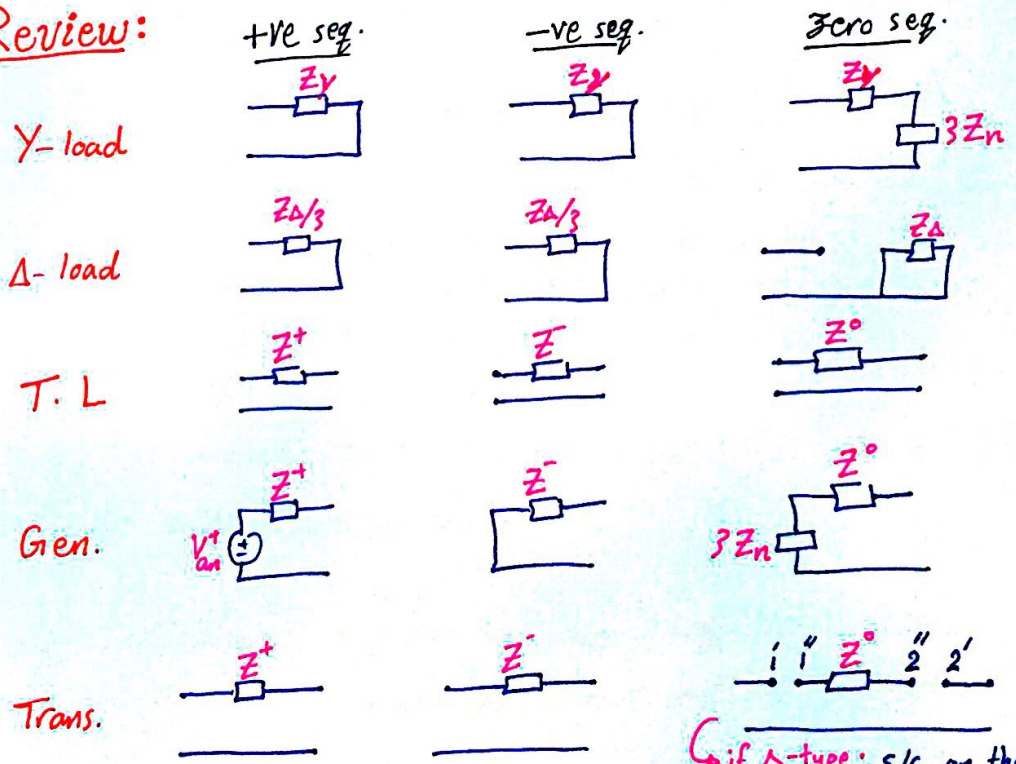 Review:
+ve seq.
-ve seq.
Zero seq.
Y-load
ZY
ZY
ZY
3Zn
Δ-load
ZΔ/3
ZΔ/3
ZΔ
T.L
Z+
Z-
Z°
Gen.
V+an
Z+
Z-
3Zn
Z°
Trans.
Z+
Z-
1' 1" Z° 2" 2'
if Δ-type: s/c on the